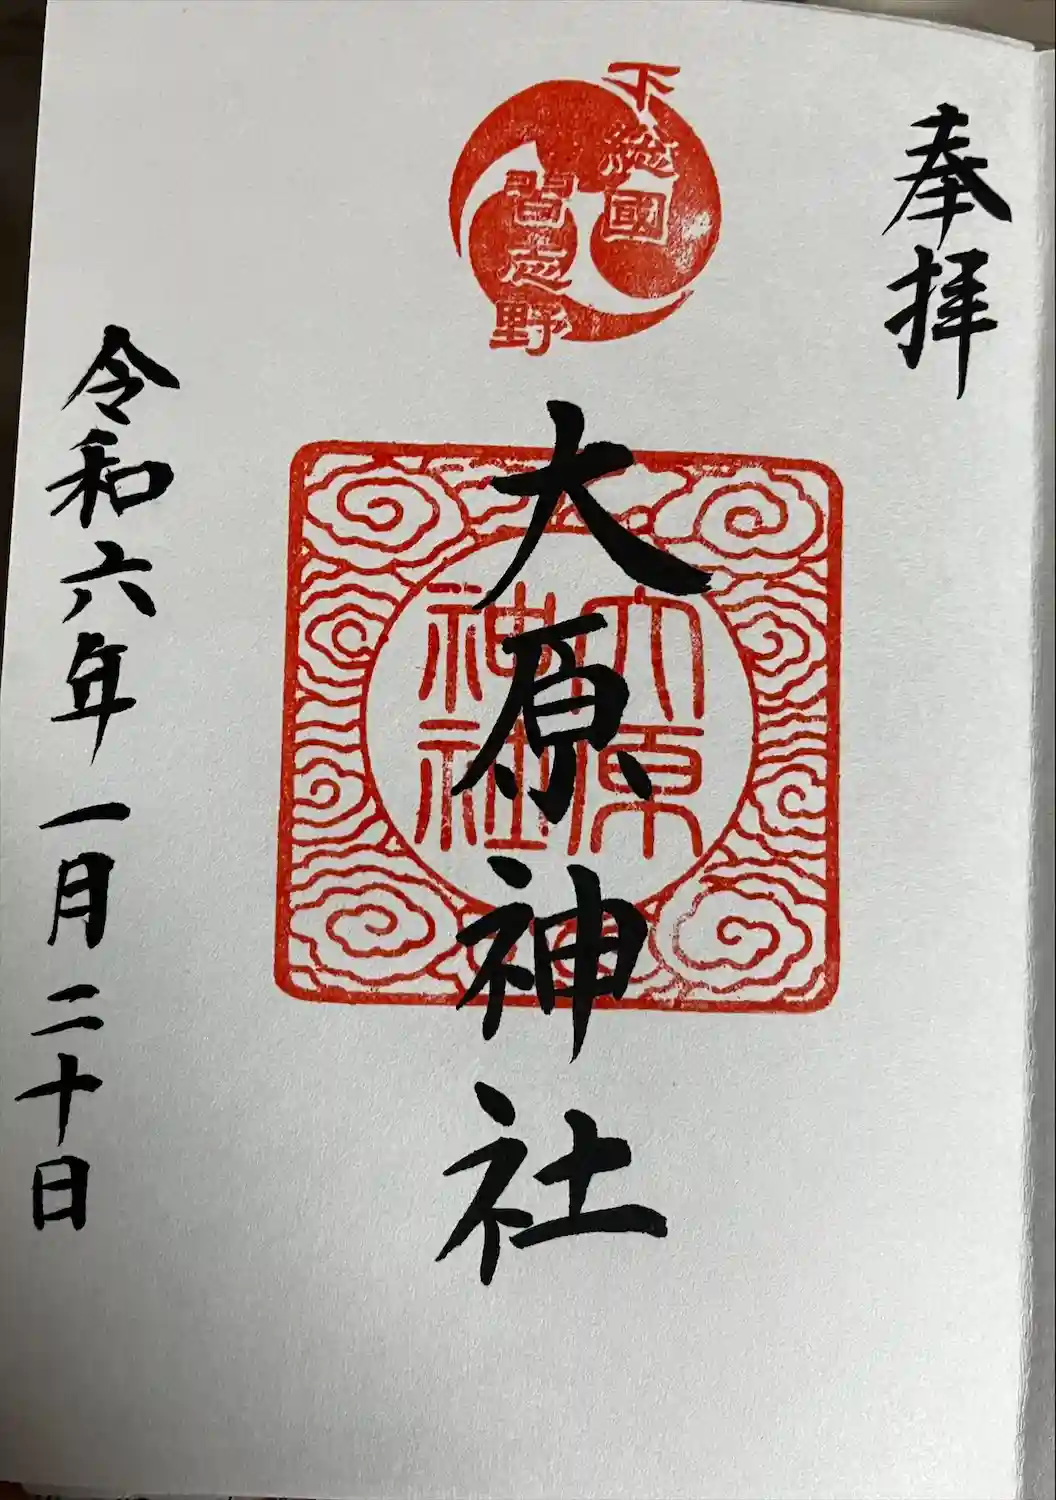 奉拝
下総國
習志野
大原神社
大原
神社
令和六年一月二十日